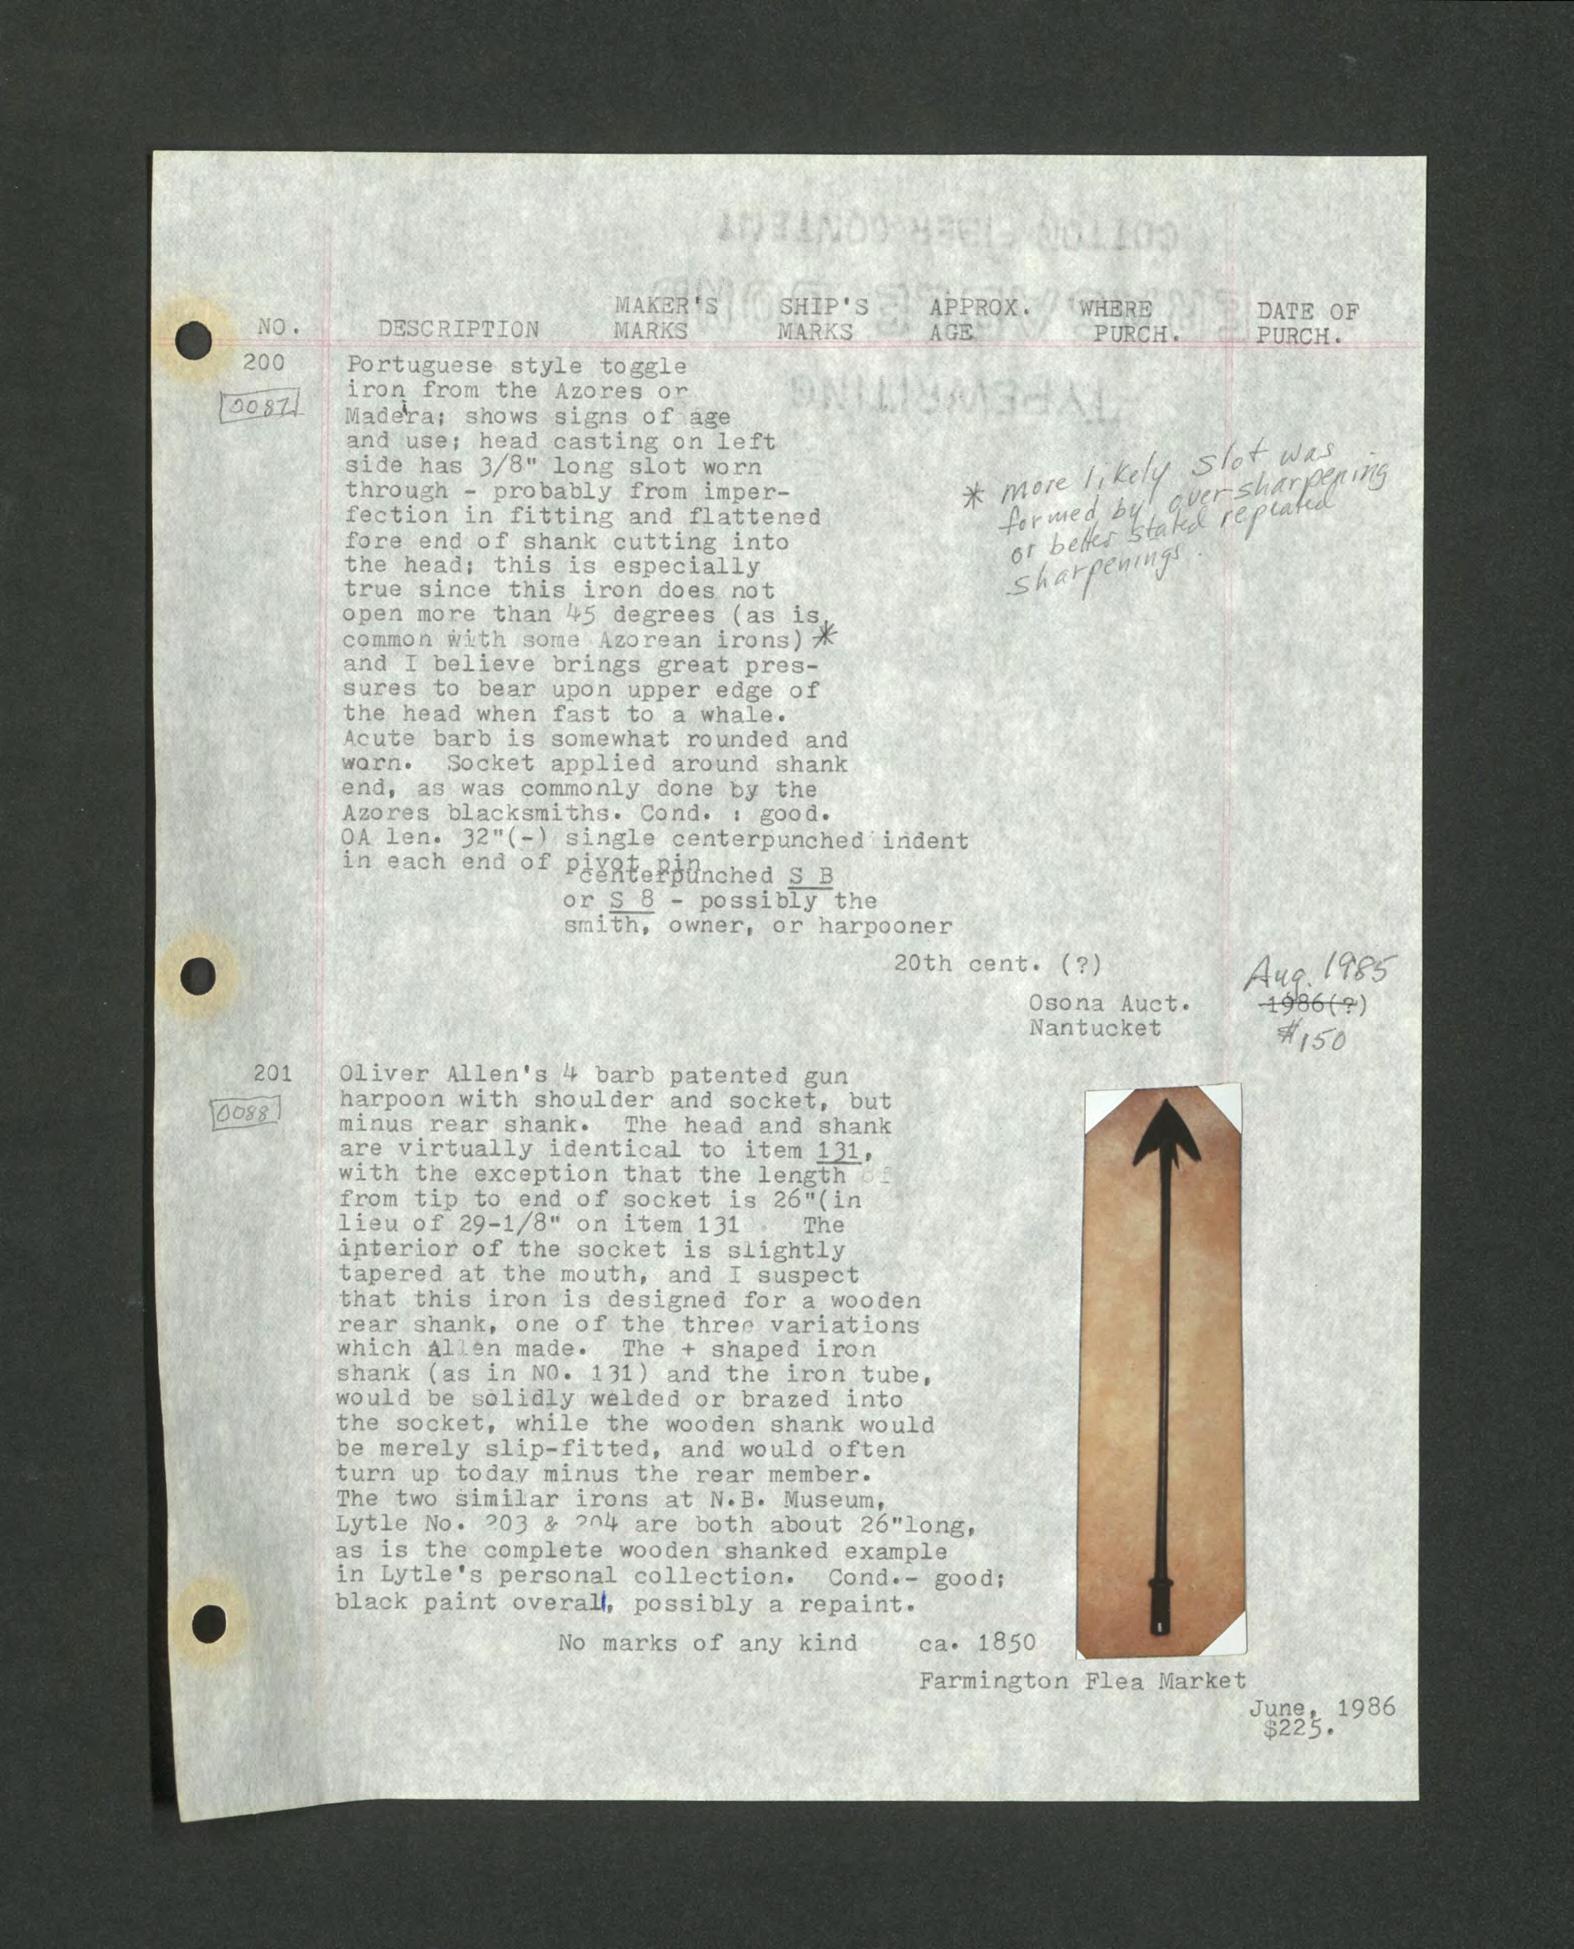 NO. DESCRIPTION MAKER'S MARKS SHIP'S MARKS APPROX. AGE WHERE PURCH. DATE OF PURCH.
200
0087
Portuguese style toggle
iron from the Azores or
Madeira; shows signs of age
and use; head casting on left
side has 3/8" long slot worn
through - probably from imper-
fection in fitting and flattened
fore end of shank cutting into
the head; this is especially
true since this iron does not
open more than 45 degrees (as is
common with some Azorean irons) *
and I believe brings great pres-
sures to bear upon upper edge of
the head when fast to a whale.
Acute barb is somewhat rounded and
worn. Socket applied around shank
end, as was commonly done by the
Azores blacksmiths. Cond. : good.
OA len. 32"(-) single centerpunched indent
in each end of pivot pin
* more likely slot was
formed by oversharpening
or better stated repeated
sharpenings.
centerpunched S B
or S 8 - possibly the
smith, owner, or harpooner
20th cent. (?)
Osona Auct.
Nantucket
Aug. 1985
1986(?)
$150
201
0088
Oliver Allen's 4 barb patented gun
harpoon with shoulder and socket, but
minus rear shank. The head and shank
are virtually identical to item 131,
with the exception that the length of
from tip to end of socket is 26"(in
lieu of 29-1/8" on item 131 . The
interior of the socket is slightly
tapered at the mouth, and I suspect
that this iron is designed for a wooden
rear shank, one of the three variations
which Allen made. The + shaped iron
shank (as in NO. 131) and the iron tube,
would be solidly welded or brazed into
the socket, while the wooden shank would
be merely slip-fitted, and would often
turn up today minus the rear member.
The two similar irons at N.B. Museum,
Lytle No. 203 & 204 are both about 26"long,
as is the complete wooden shanked example
in Lytle's personal collection. Cond.- good;
black paint overall, possibly a repaint.
No marks of any kind ca. 1850
Farmington Flea Market
June, 1986
$225.